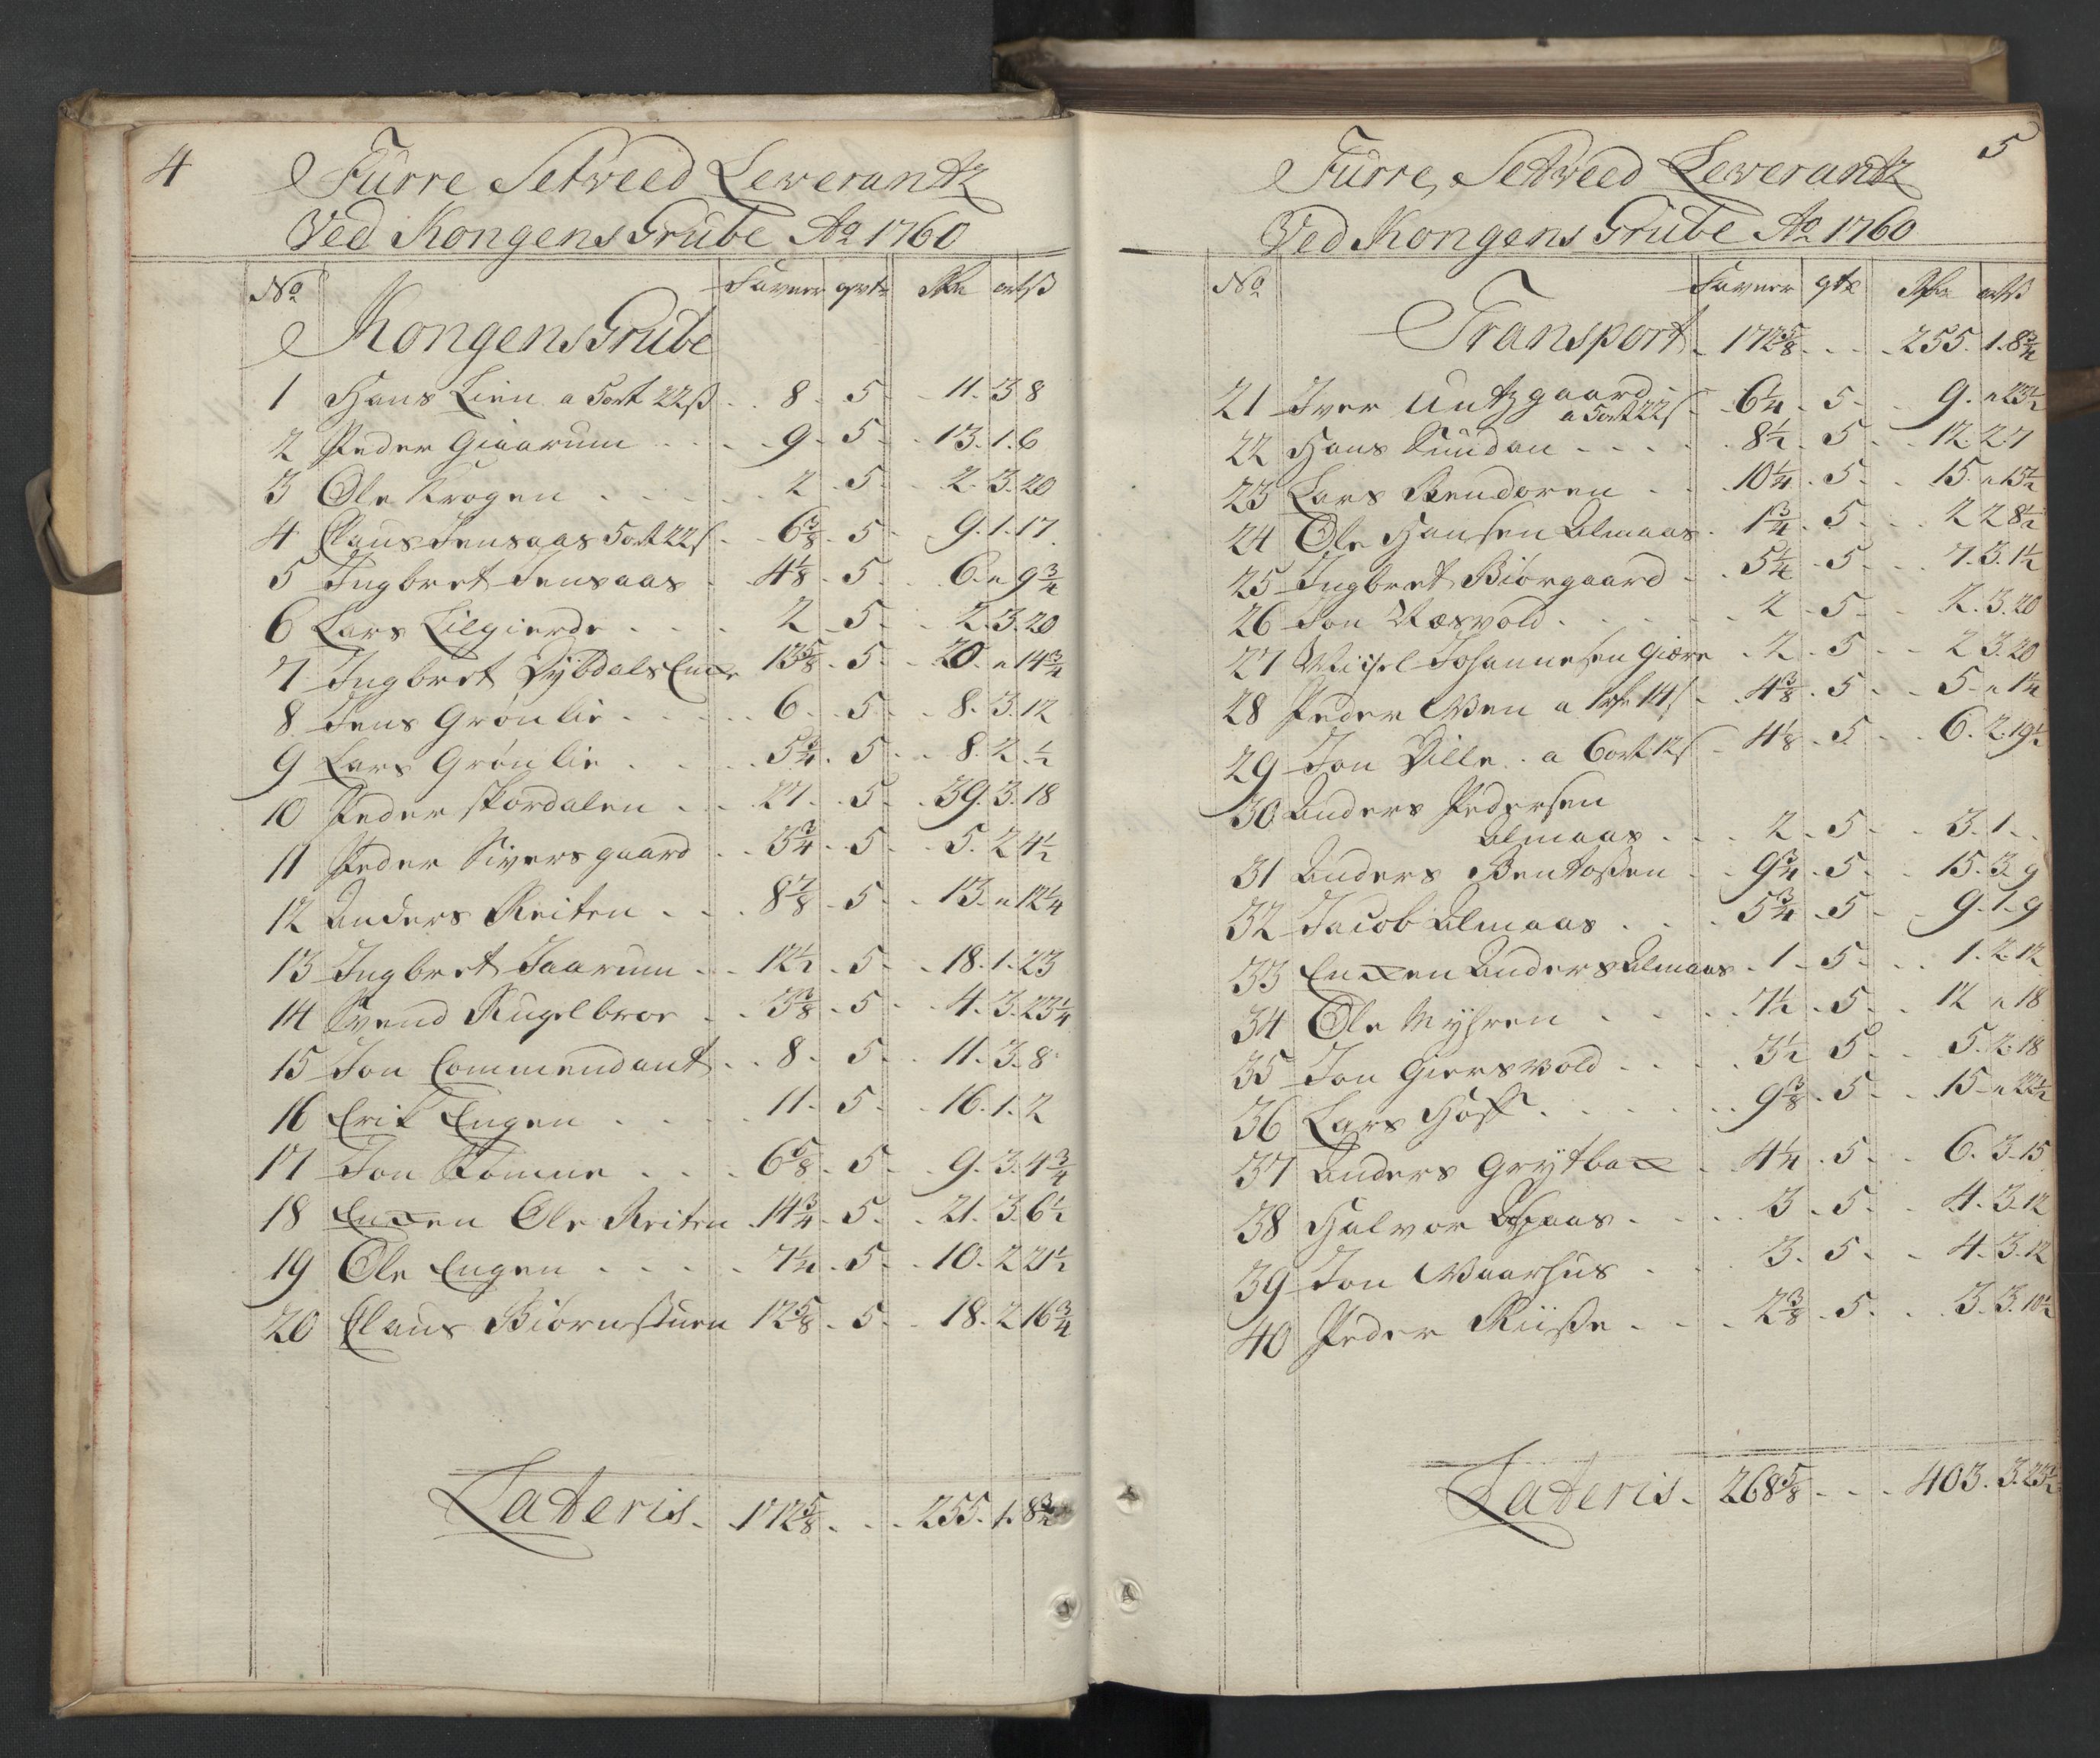 4
Furre Setveed Leverantz
Ved Kongens Grube Ao 1760
No Favner qvts Rdr ort ß
Kongens Grube
1 Hans Lien a 5ort 22ß 8 5 11 3 8
2 Peder Giaarum 9 5 13 1 6
3 Ole Krogen 2 5 2 3 20
4 Claus Jensaas 5ort 22ß 6 3/8 5 9 1 17
5 Ingbret Jensaas 4 1/8 5 6 " 9 3/4
6 Lars Lilgierde 2 5 2 3 20
7 Ingbret Dybdals Encke 13 5/8 5 20 " 14 3/4
8 Jens Grønlie 6 5 8 3 12
9 Lars Grønlie 5 3/4 5 8 2 1/2
10 Peder Skordalen 27 5 39 3 18
11 Peder Siversgaard 3 3/4 5 5 2 4 1/2
12 Anders Reiten 8 7/8 5 13 " 12 1/4
13 Ingbret Jaarum 12 1/2 5 18 1 23
14 Svend Kugelbroe 3 3/8 5 4 3 23 1/4
15 Jon Commendant 8 5 11 3 8
16 Erik Engen 11 5 16 1 2
17 Jon Tømne 6 5/8 5 9 3 4 3/4
18 Encken Ole Reiten 14 3/4 5 21 3 6 1/2
19 Ole Engen 7 1/4 5 10 2 21 1/2
20 Claus Biørnstuen 12 5/8 5 18 2 16 3/4
Lateris 172 5/8 255 1 8 3/4
5
Furre Setveed Leverantz
Ved Kongens Grube Ao 1760
No Favner qts Rdr ort ß
Transport 172 5/8 255 1 8 3/4
21 Iver Untzgaard
a 5ort 22ß 6 1/4 5 9 " 23 1/2
22 Hans Sundan 8 1/2 5 12 2 7
23 Lars Bendoren 10 1/4 5 15 " 15 1/2
24 Ole Hansen Almaas 1 3/4 5 2 2 8 1/2
25 Ingbret Biørgaard 5 1/4 5 7 3 1 1/2
26 Jon Næsvold 2 5 2 3 20
27 Michel Johannesen Giære 2 5 2 3 20
28 Peder Wen a 1rdr 14ß 4 3/8 5 5 " 1 1/4
29 Jon Dille a 6ort 12ß 4 1/8 5 6 2 19 1/2
30 Anders Pedersen
Almaas 2 5 3 1
31 Anders Bentossen 9 3/4 5 15 3 9
32 Jacob Almaas 5 3/4 5 9 1 9
33 Encken Anders Almaas 1 5 1 2 12
34 Ole Myhren 7 1/2 5 12 " 18
35 Jon Giersvold 3 1/2 5 5 2 18
36 Lars Hoff 9 3/8 5 15 " 22 1/2
37 Anders Grytback 4 1/4 5 6 3 15
38 Halvor Aspaas 3 5 4 3 12
39 Jon Waarhus 3 5 4 3 12
40 Peder Riisse 2 3/8 5 3 3 10 1/2
Lateris 268 5/8 403 3 23 1/2